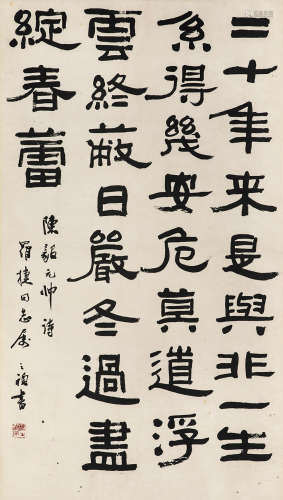 二十年来是與非一生
系得幾安危莫道浮
雲終蔽日嚴冬過盡
綻春蕾
陳毅元帅詩
羅捷同志属 之 書